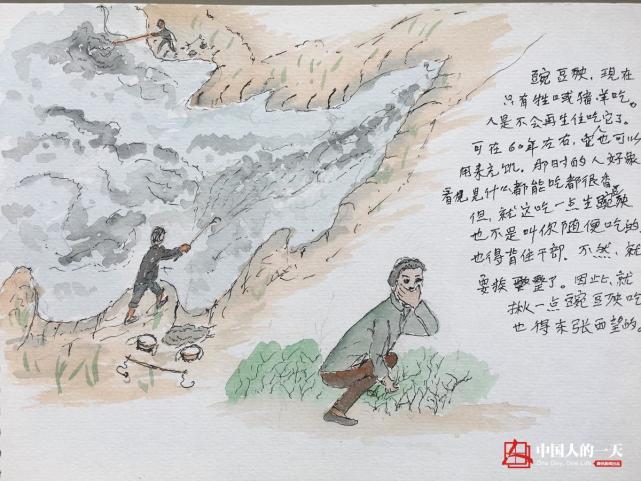 豌豆殃,现在
只有牲口或猪羊吃。
人是不会再生住吃它了。
可在60年左右,它也可以
用来充饥。那时的人好像
着是什么都能吃都很香。
但,就这吃一点生豌豆殃
也不是叫你随便吃的,
也得背住干部。不然,就
要挨整了。因此,就
揪一点豌豆殃吃
也得东张西望的。
中国人的一天
One Day, One Life
腾讯新闻出品